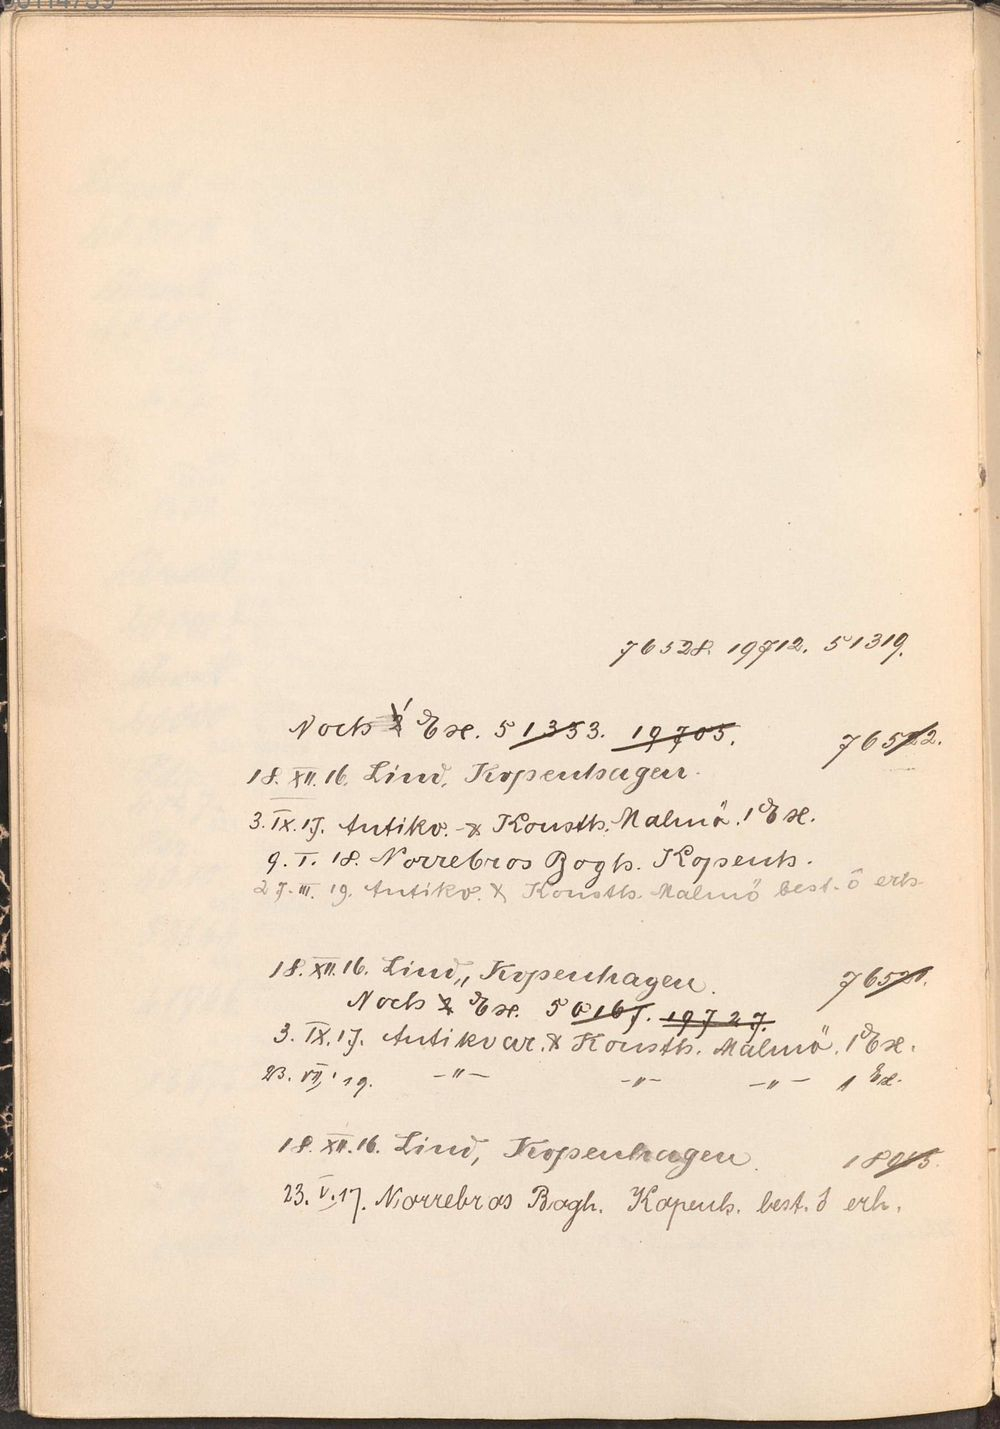 76528. 19712. 51319.
Noch 1 Ex. 51353. 19705. 76522.
18. XII. 16. Lind, Kopenhagen.
3. IX. 17. Antikv. & Konsth. Malmö. 1 Ex.
9. I. 18. Norrebros Bogh. Kopenh.
27. III. 19. Antikv. & Konsth. Malmö best. ô erh.
18. XII. 16. Lind,, Kopenhagen. 76521.
Noch 2 Ex. 50167. 19727.
3. IX. 17. Antikvar. & Konsth. Malmö. 1 Ex.
23. VII. 19. –"– –"– –"– 1 Ex.
18. XII. 16. Lind, Kopenhagen. 18915.
23. V. 17. Norrebros Bogh. Kopenh. best. erh.